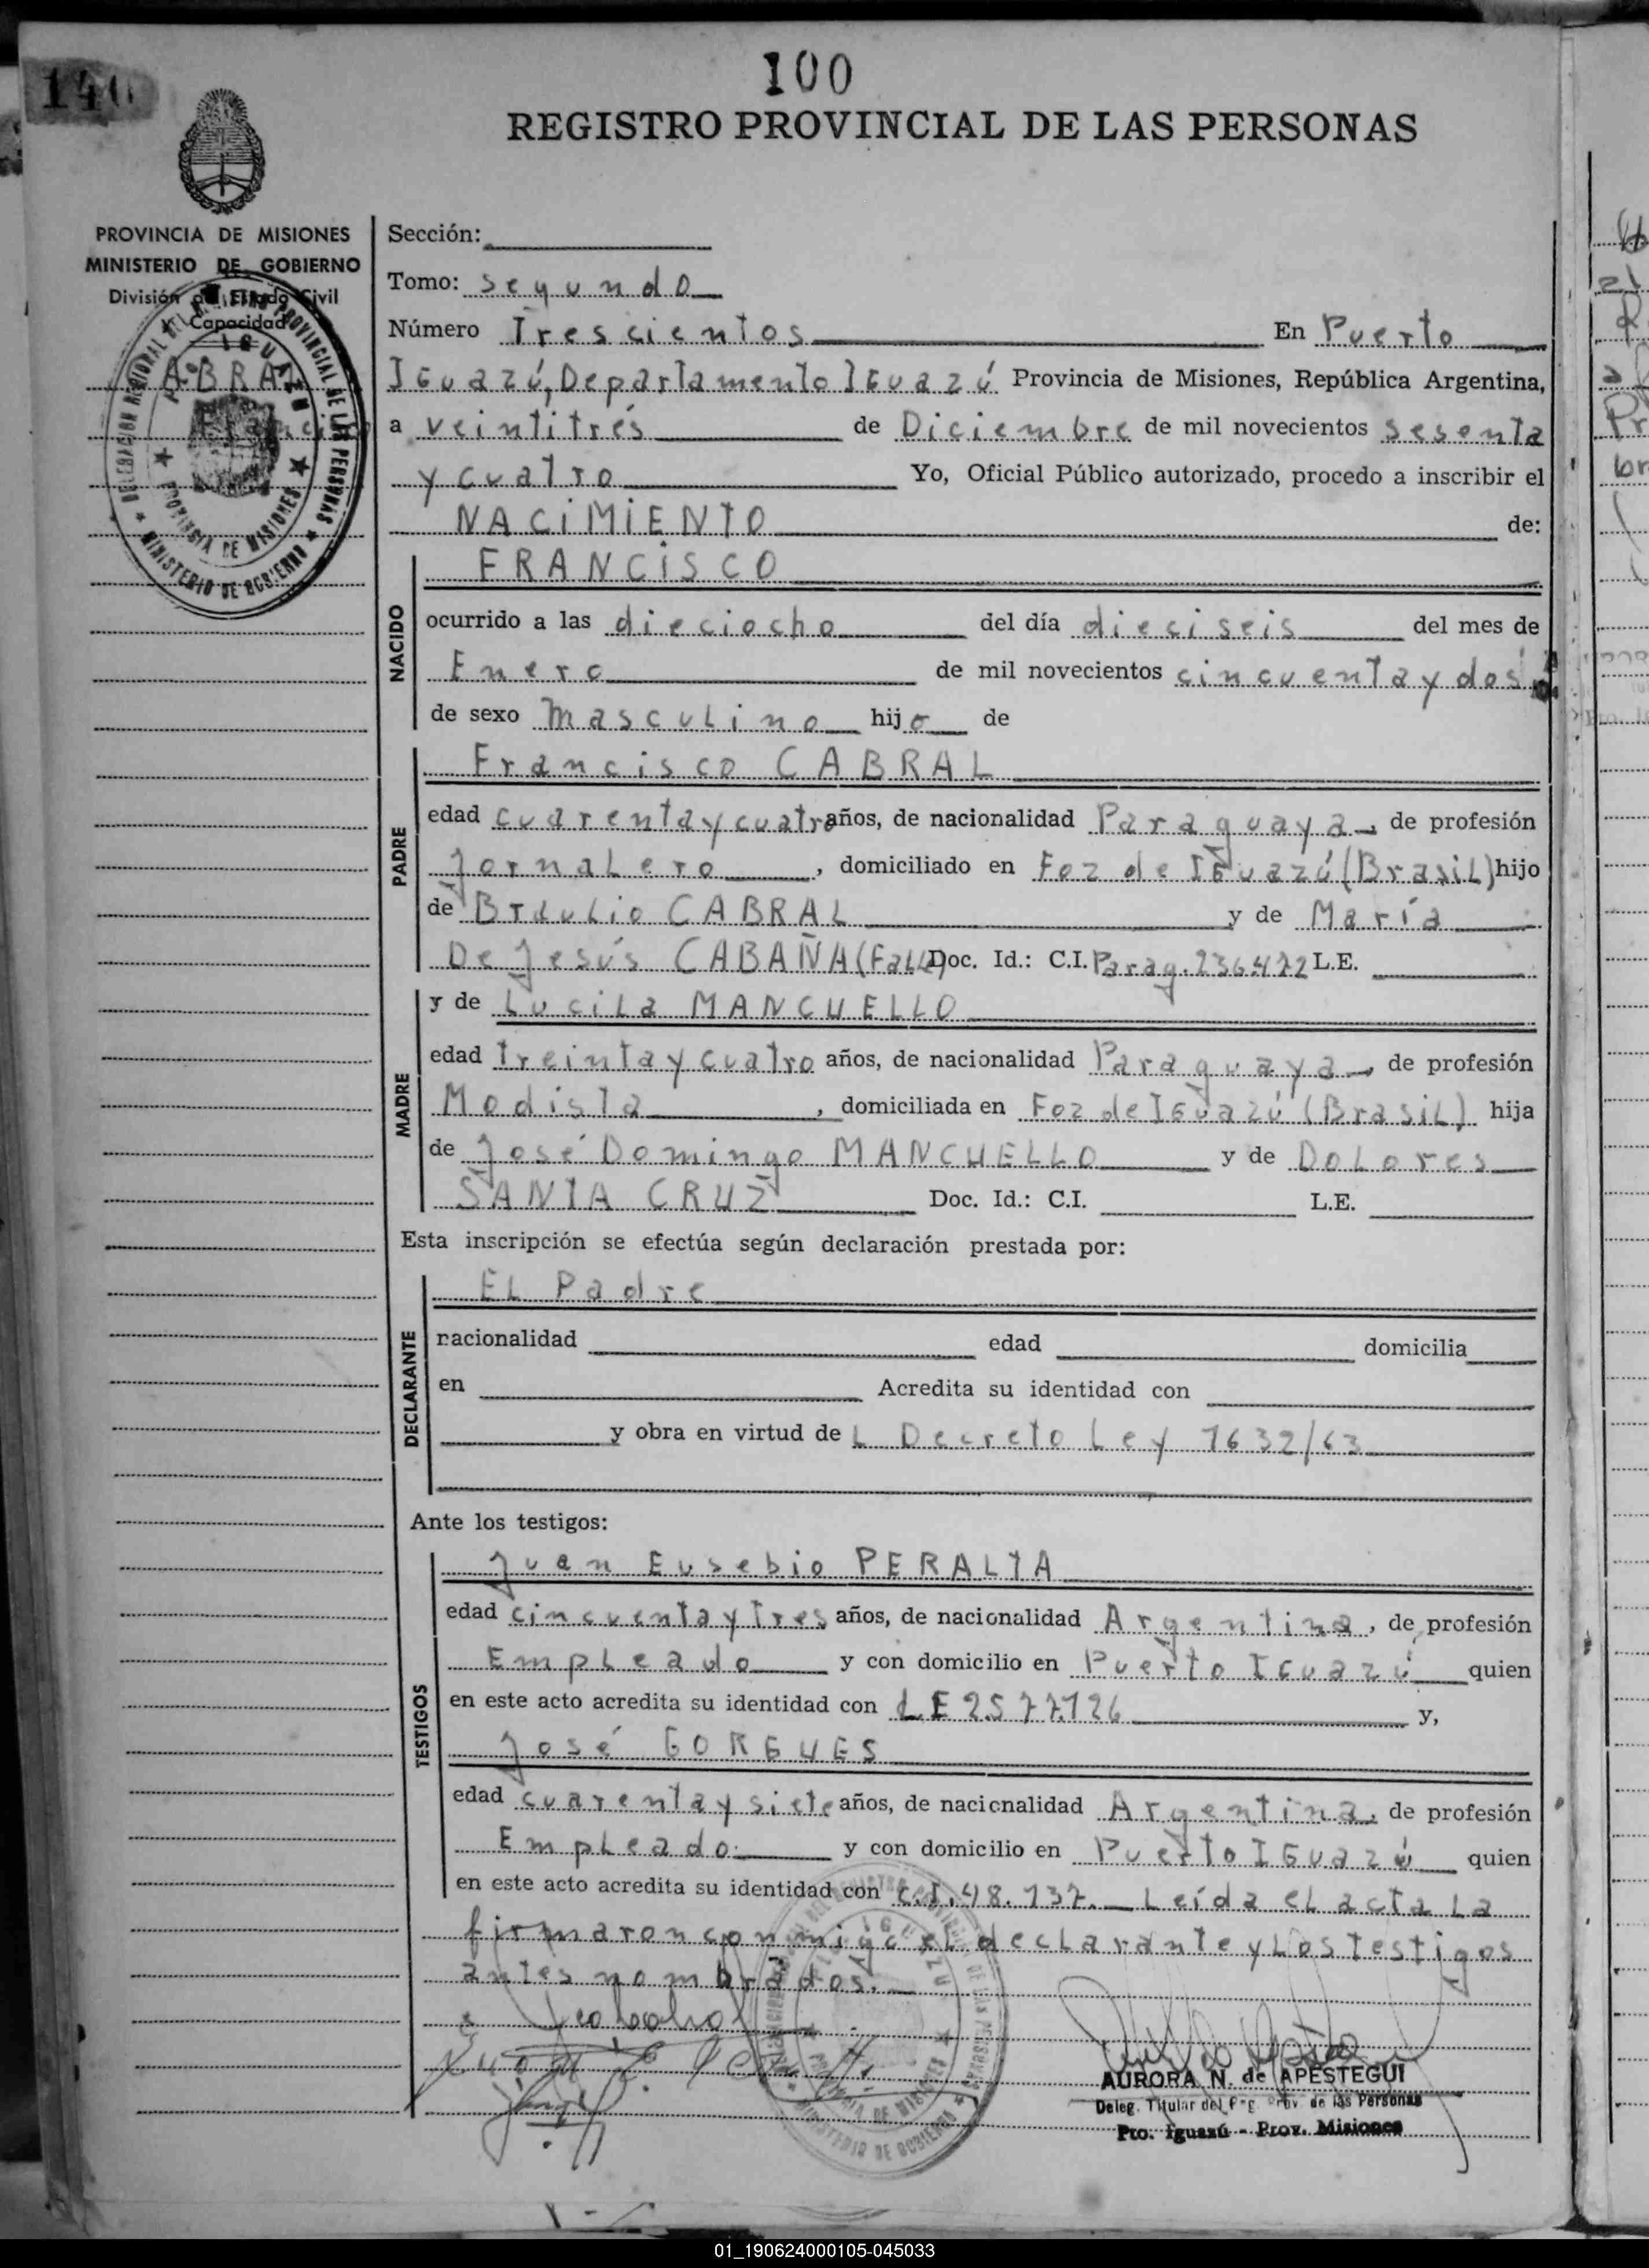 140
100
REGISTRO PROVINCIAL DE LAS PERSONAS
PROVINCIA DE MISIONES
MINISTERIO DE GOBIERNO
División del Estado Civil
y Capacidad
CABRAL
Francisco
Sección:
Tomo: segundo
Número Trescientos En Puerto
Iguazú, Departamento Iguazú Provincia de Misiones, República Argentina,
a veintitrés de Diciembre de mil novecientos sesenta
y cuatro Yo, Oficial Público autorizado, procedo a inscribir el
NACIMIENTO de:
NACIDO
FRANCISCO
ocurrido a las dieciocho del día dieciseis del mes de
Enero de mil novecientos cincuenta y dos
de sexo masculino hijo de
PADRE
Francisco CABRAL
edad cuarenta y cuatro años, de nacionalidad Paraguaya, de profesión
Jornalero, domiciliado en Foz de Iguazú (Brasil) hijo
de Braulio CABRAL y de María
De Jesús CABAÑA (Fall) Doc. Id.: C.I. Parag. 236472 L.E.
MADRE
y de Lucila MANCUELLO
edad treinta y cuatro años, de nacionalidad Paraguaya, de profesión
Modista, domiciliada en Foz de Iguazú (Brasil) hija
de José Domingo MANCUELLO y de Dolores
SANTA CRUZ Doc. Id.: C.I. L.E.
Esta inscripción se efectúa según declaración prestada por:
DECLARANTE
El Padre
nacionalidad edad domicilia
en Acredita su identidad con
y obra en virtud del Decreto Ley 1632/63
Ante los testigos:
TESTIGOS
Juan Eusebio PERALTA
edad cincuenta y tres años, de nacionalidad Argentina, de profesión
Empleado y con domicilio en Puerto Iguazú quien
en este acto acredita su identidad con L.E 2.577.126 y,
José GORGUES
edad cuarenta y siete años, de nacionalidad Argentina, de profesión
Empleado y con domicilio en Puerto Iguazú quien
en este acto acredita su identidad con C.I. 48.137. Leída el acta la
firmaron conmigo el declarante y los testigos
antes nombrados.
AURORA N. de APESTEGUI
Deleg. Titular del Reg. Prov. de las Personas
Pto. Iguazú - Prov. Misiones
01_190624000105-045033